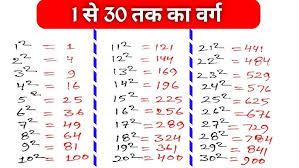 1 से 30 तक का वर्ग
1² = 1
2² = 4
3² = 9
4² = 16
5² = 25
6² = 36
7² = 49
8² = 64
9² = 81
10² = 100
11² = 121
12² = 144
13² = 169
14² = 196
15² = 225
16² = 256
17² = 289
18² = 324
19² = 361
20² = 400
21² = 441
22² = 484
23² = 529
24² = 576
25² = 625
26² = 676
27² = 729
28² = 784
29² = 841
30² = 900